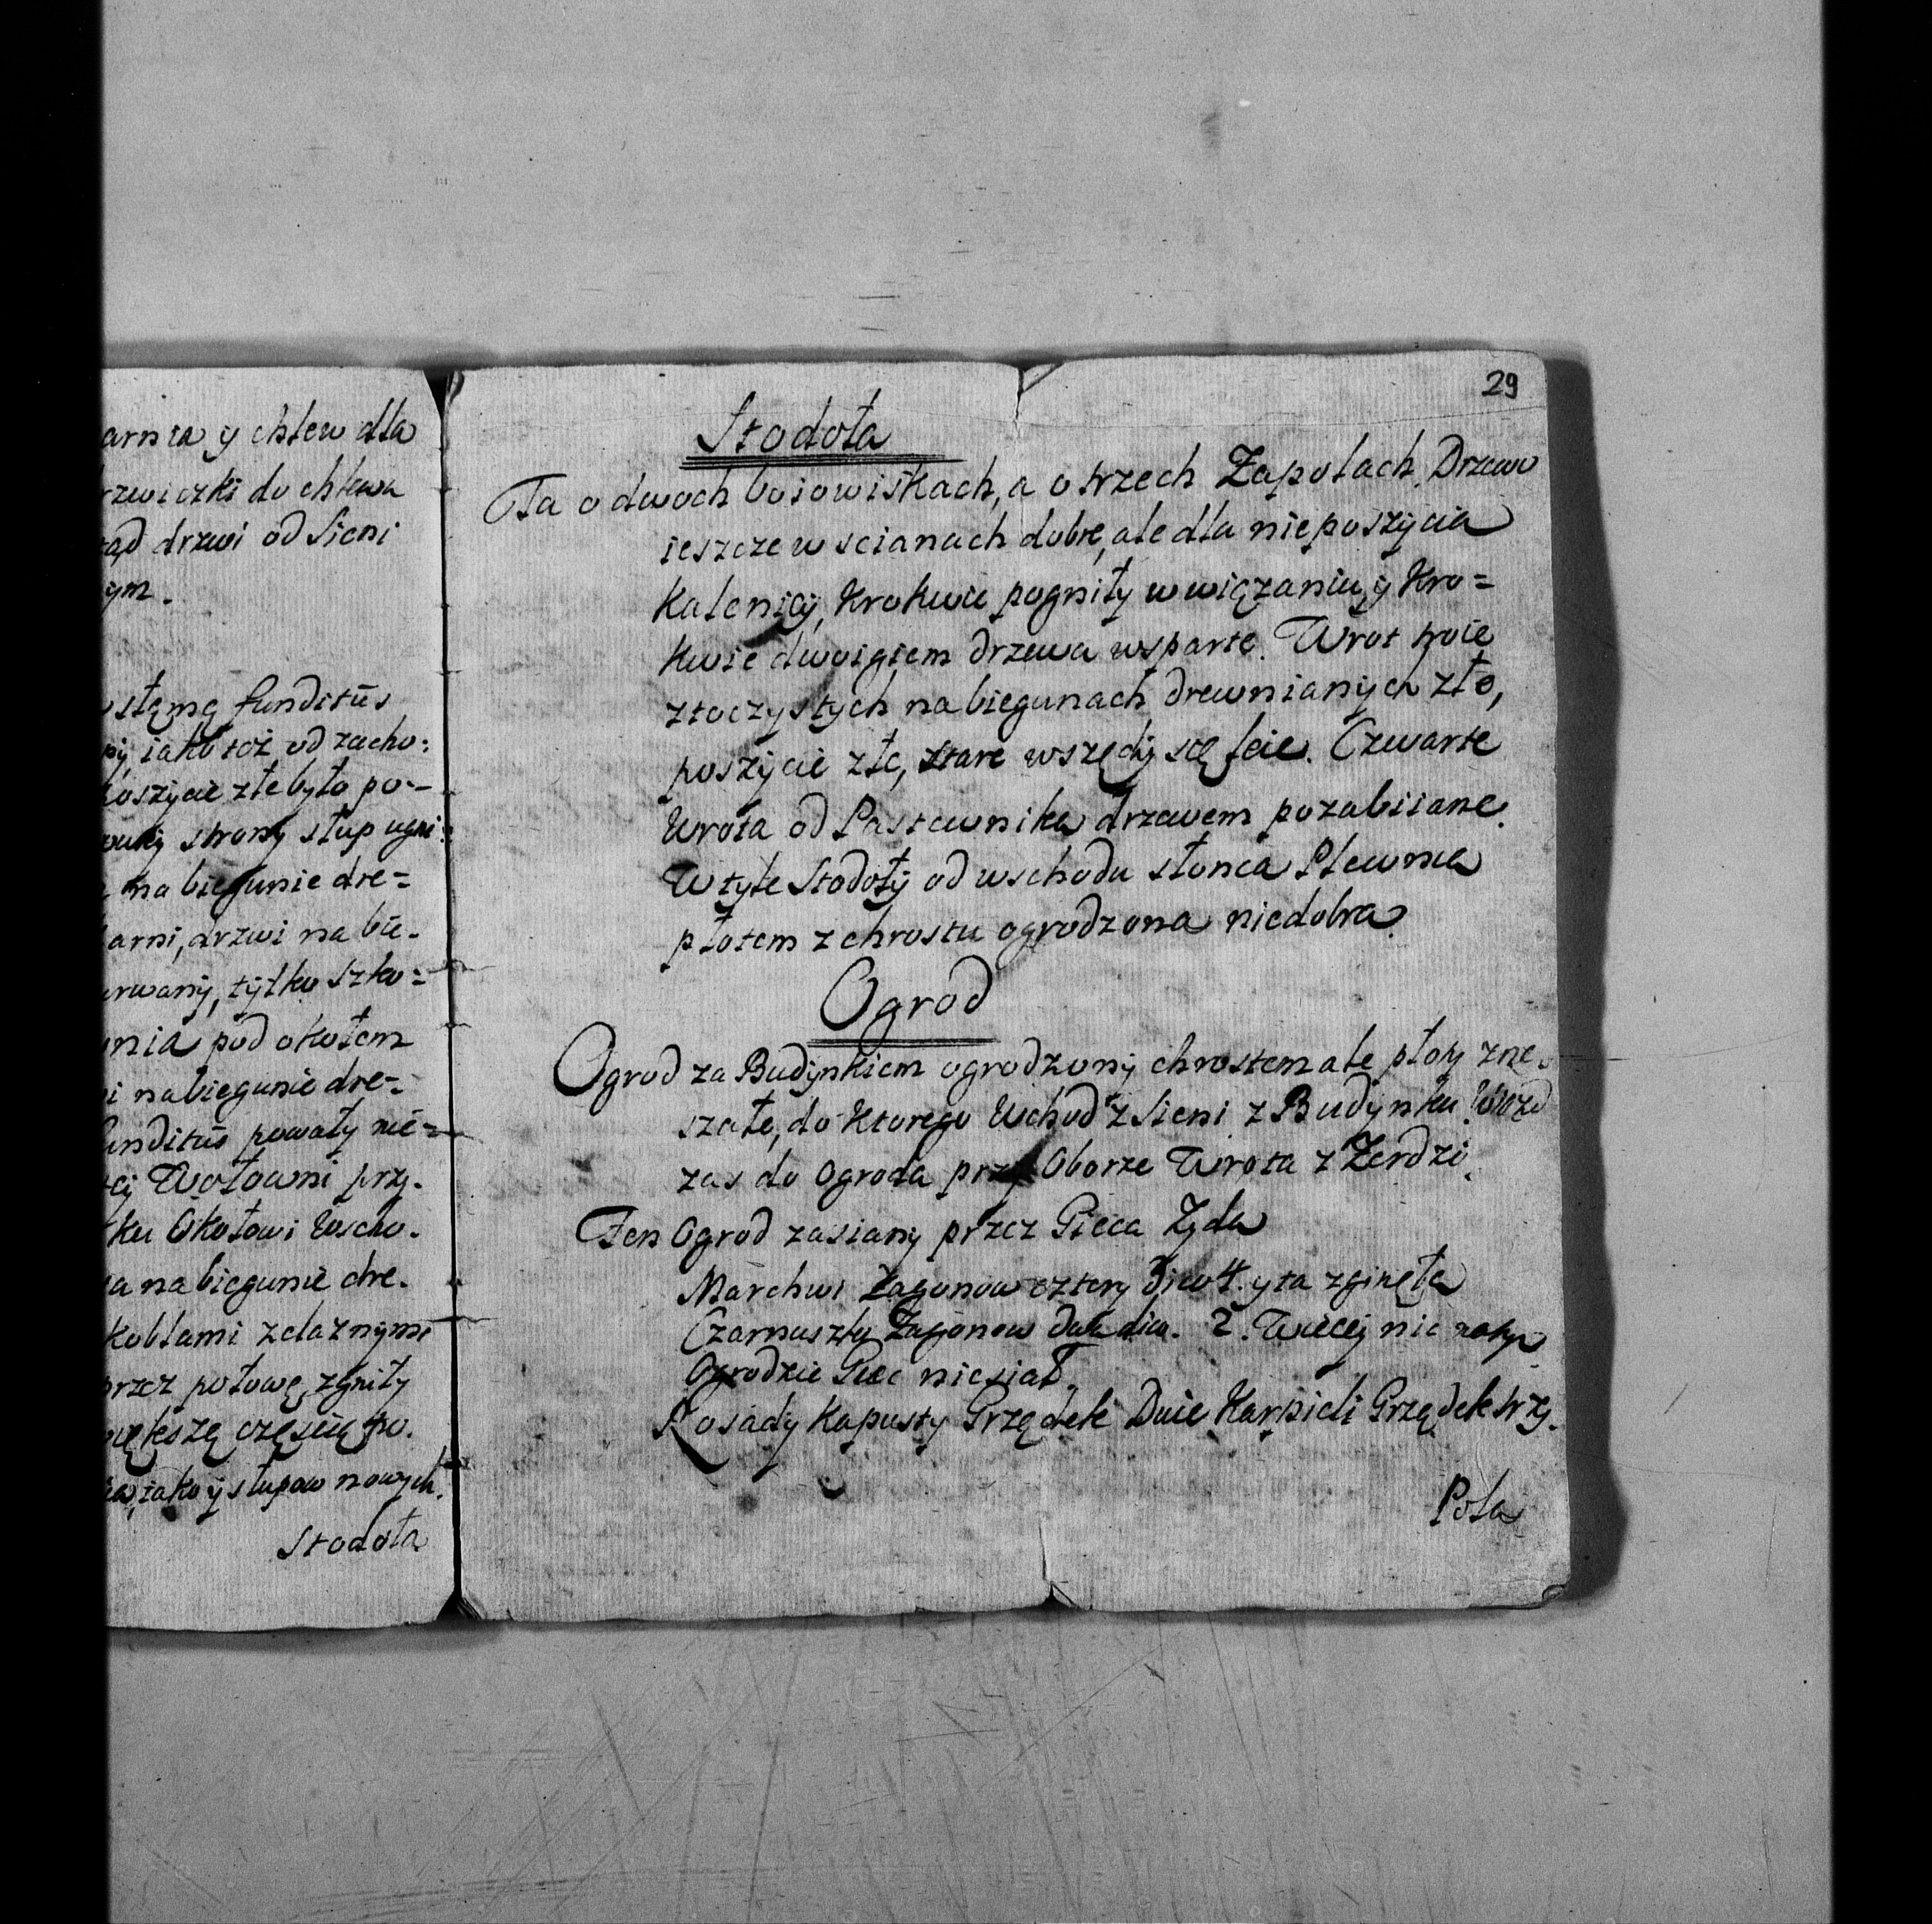 y chlew dla
do chlewa
drzwi od Sieni
funditus
iako toż od zacho:
złe było po-
strony słup
na biegunie dre=
drzwi na bie-
tylko szko=
pod okołem
na biegunie dre-
powały nie=
Wołowni przy-
Okołowi wscho-
na biegunie dre-
żelaznymi
połowę, zgniły
częscią po-
iako y słupow nowych.
Stodoła
29
Stodoła
Ta o dwoch boiowiskach, a o trzech Zapolach. Drzewo
ieszcze w scianach dobre, ale dla nie poszycia
Kalenicy, Krokwie pogniły w wiązaniu, y Kro=
kwie dwoigiem drzewa wsparte. Wrot troie
ztoczystych na biegunach drewnianych złe,
poszycie złe, stare wszędy się leie. Czwarte
Wrota od Pastewnika drzewem pozabiiane.
W tyle Stodoły od wschodu słonca Plewnia
płotem z chrostu ogrodzona niedobra.
Ogrod
Ogrod za Budynkiem ogrodzony chrostem ale płoty
szałe, do ktorego Wchod z Sieni z Budynku. Wiazd
zas do Ogroda przy Oborze Wrota z Zerdzi.
Ten Ogrod zasiany przez Gieca Zyda
Marchwi Zagonow cztery 4. y ta zgineła
Czarnuszky Zagonow 2. Wiecey nic
Ogrodzie Giec niesiał.
Rosady Kapusty Grządek Dwie Karpieli Grządek trzy.
Pola